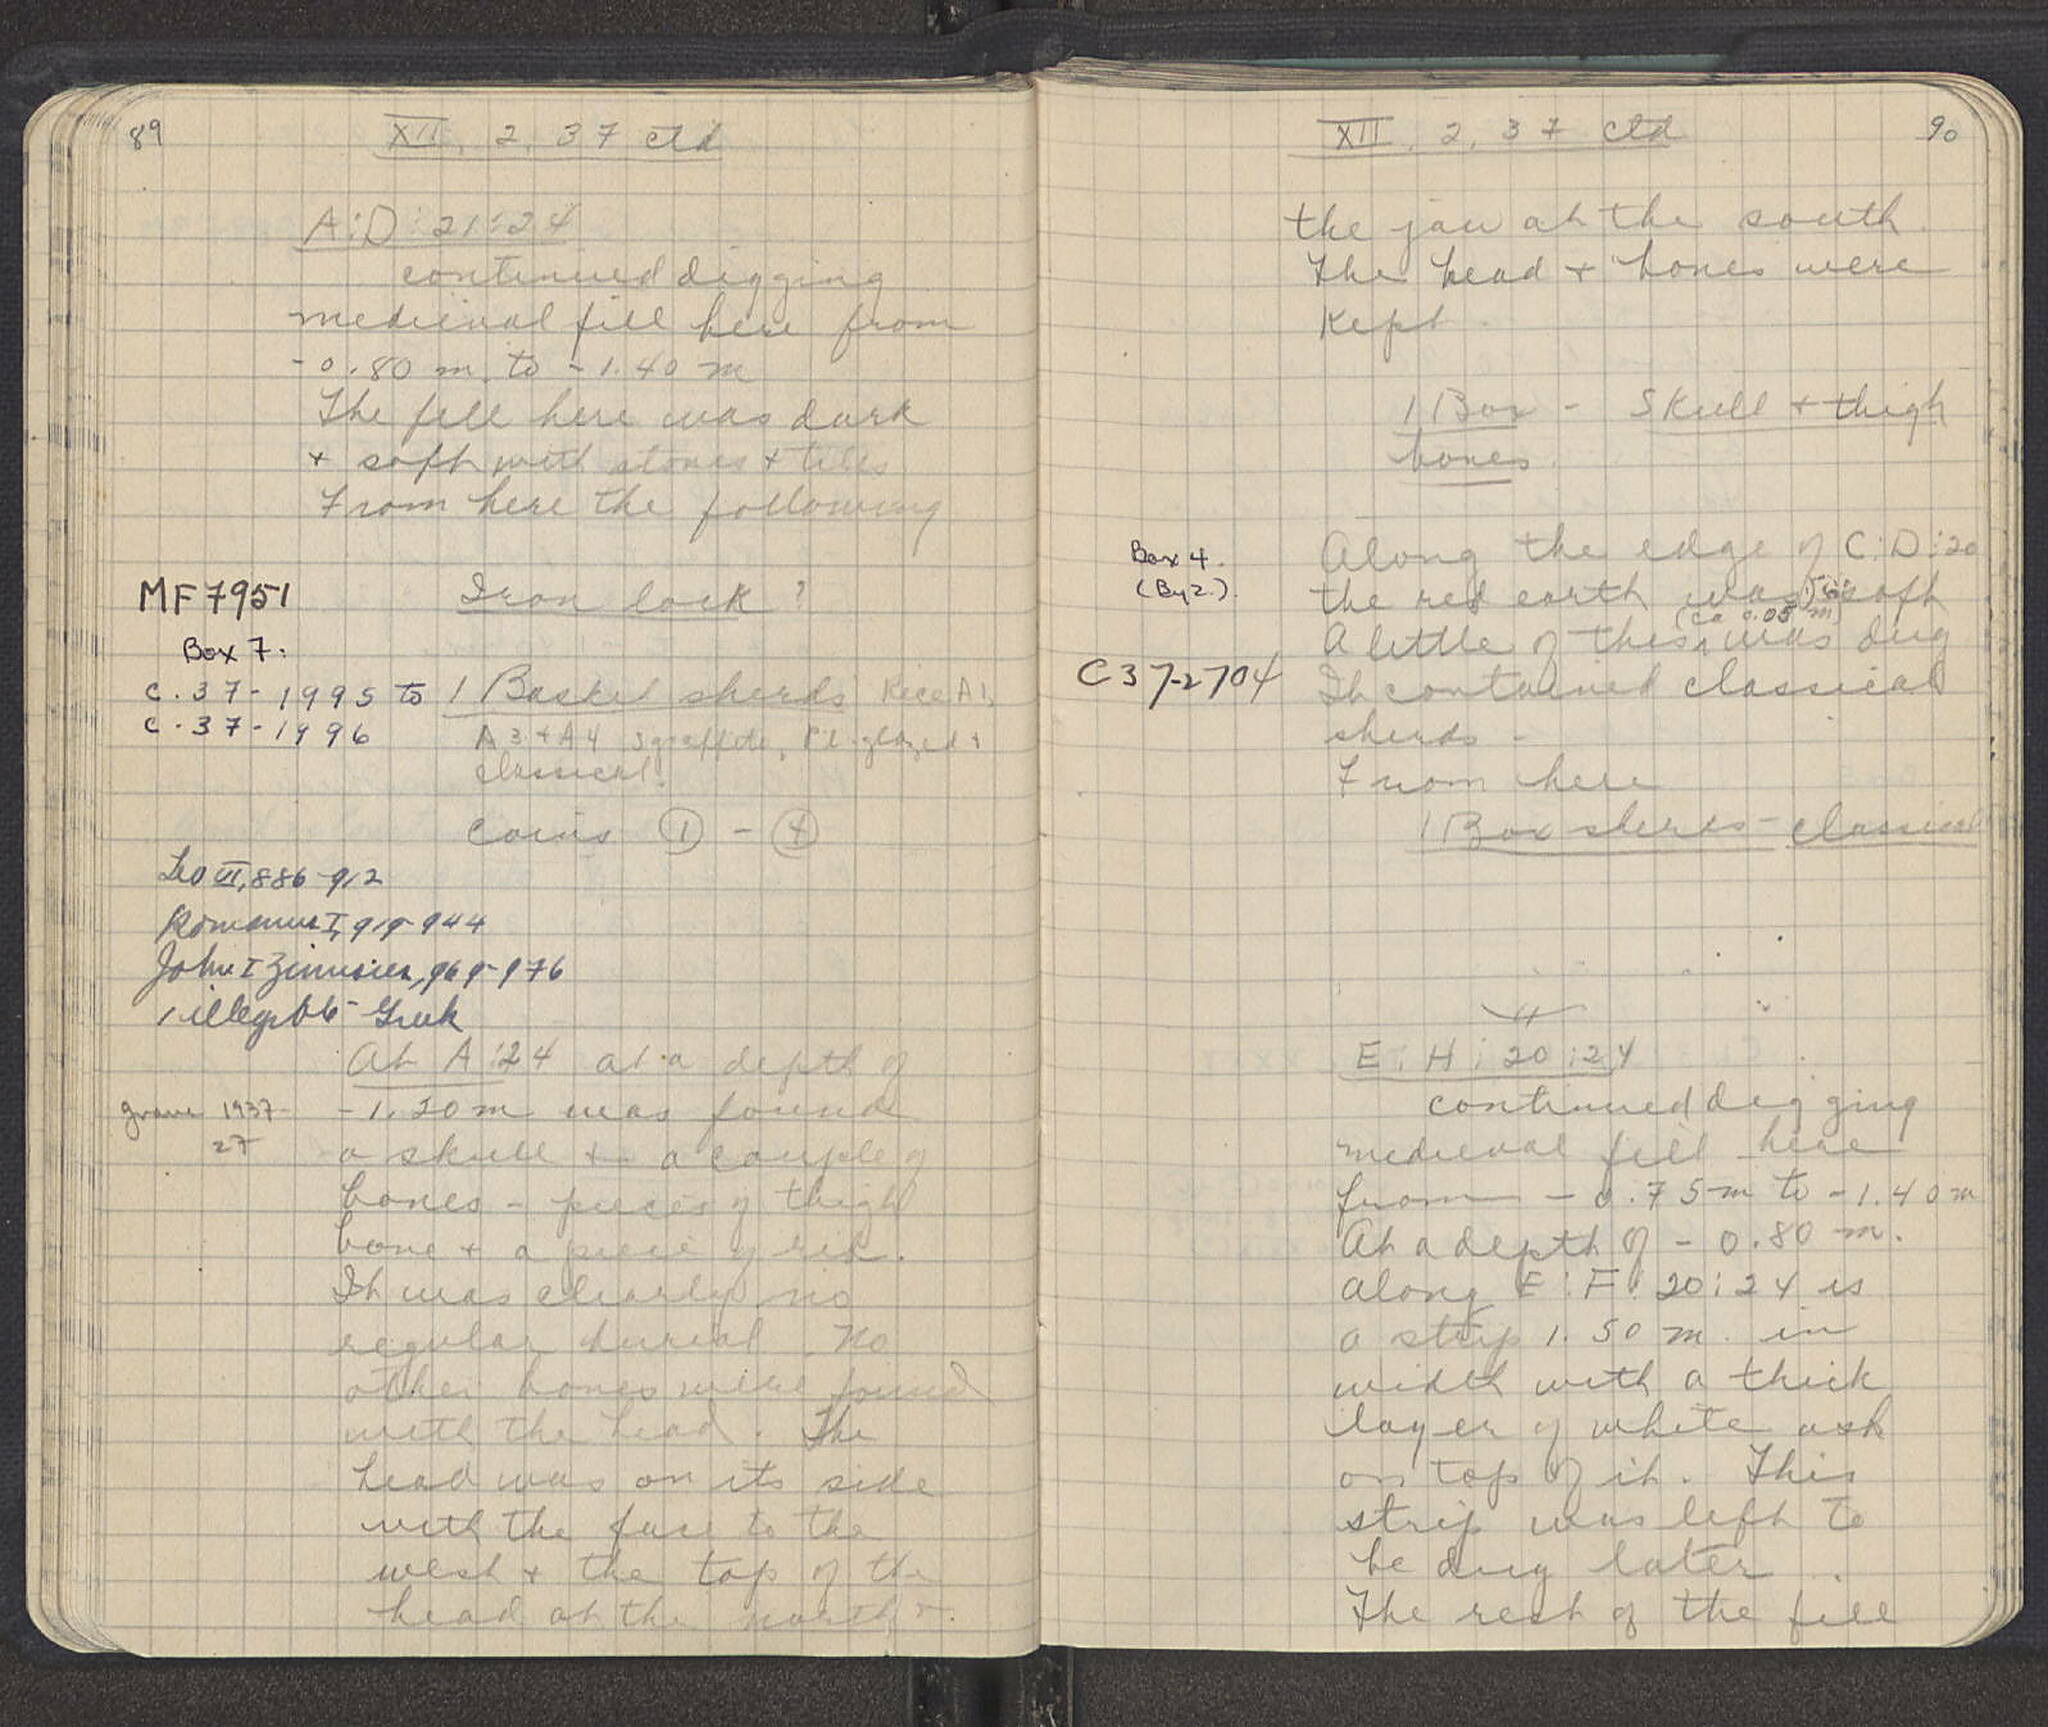 89
XII, 2, 37 ctd
A:D:21:24
continued digging
medieval fill here from
-0.80 m. to -1.40 m
The fill here was dark
+ soft with stones + tiles
From here the following
MF 7951
Iron lock ?
Box 7.
C.37-1995 to
C.37-1996
1 Basket sherds Rice A1,
A3 + A4 sgraffito, Pl. glazed +
classical.
Coins ① - ④
Leo VI, 886-912
Romanus I, 919-944
John I Zimisces, 969-976
1 illegible Greek
At A:24 at a depth of
-1.20 m was found
grave 1937-
27
a skull + a couple of
bones - pieces of thigh
bone + a piece of rib.
It was clearly no
regular burial. No
other bones were found
with the head. The
head was on its side
with the face to the
west + the top of the
head at the north +
90
XII, 2, 37 ctd
the jaw at the south.
The head + bones were
kept.
1 Box - Skull + thigh
bones.
Box 4.
(By 2.).
Along the edge of C:D:20
the red earth was soft
(ca 0.05 m)
A little of this was dug
C37-2704
It contained classical
sherds.
From here
1 Box sherds - classical
E:H:20:24
continued digging
medieval fill here
from -0.75 m to -1.40 m
At a depth of -0.80 m.
along E:F:20:24 is
a strip 1.50 m. in
width with a thick
layer of white ash
on top of it. This
strip was left to
be dug later.
The rest of the fill